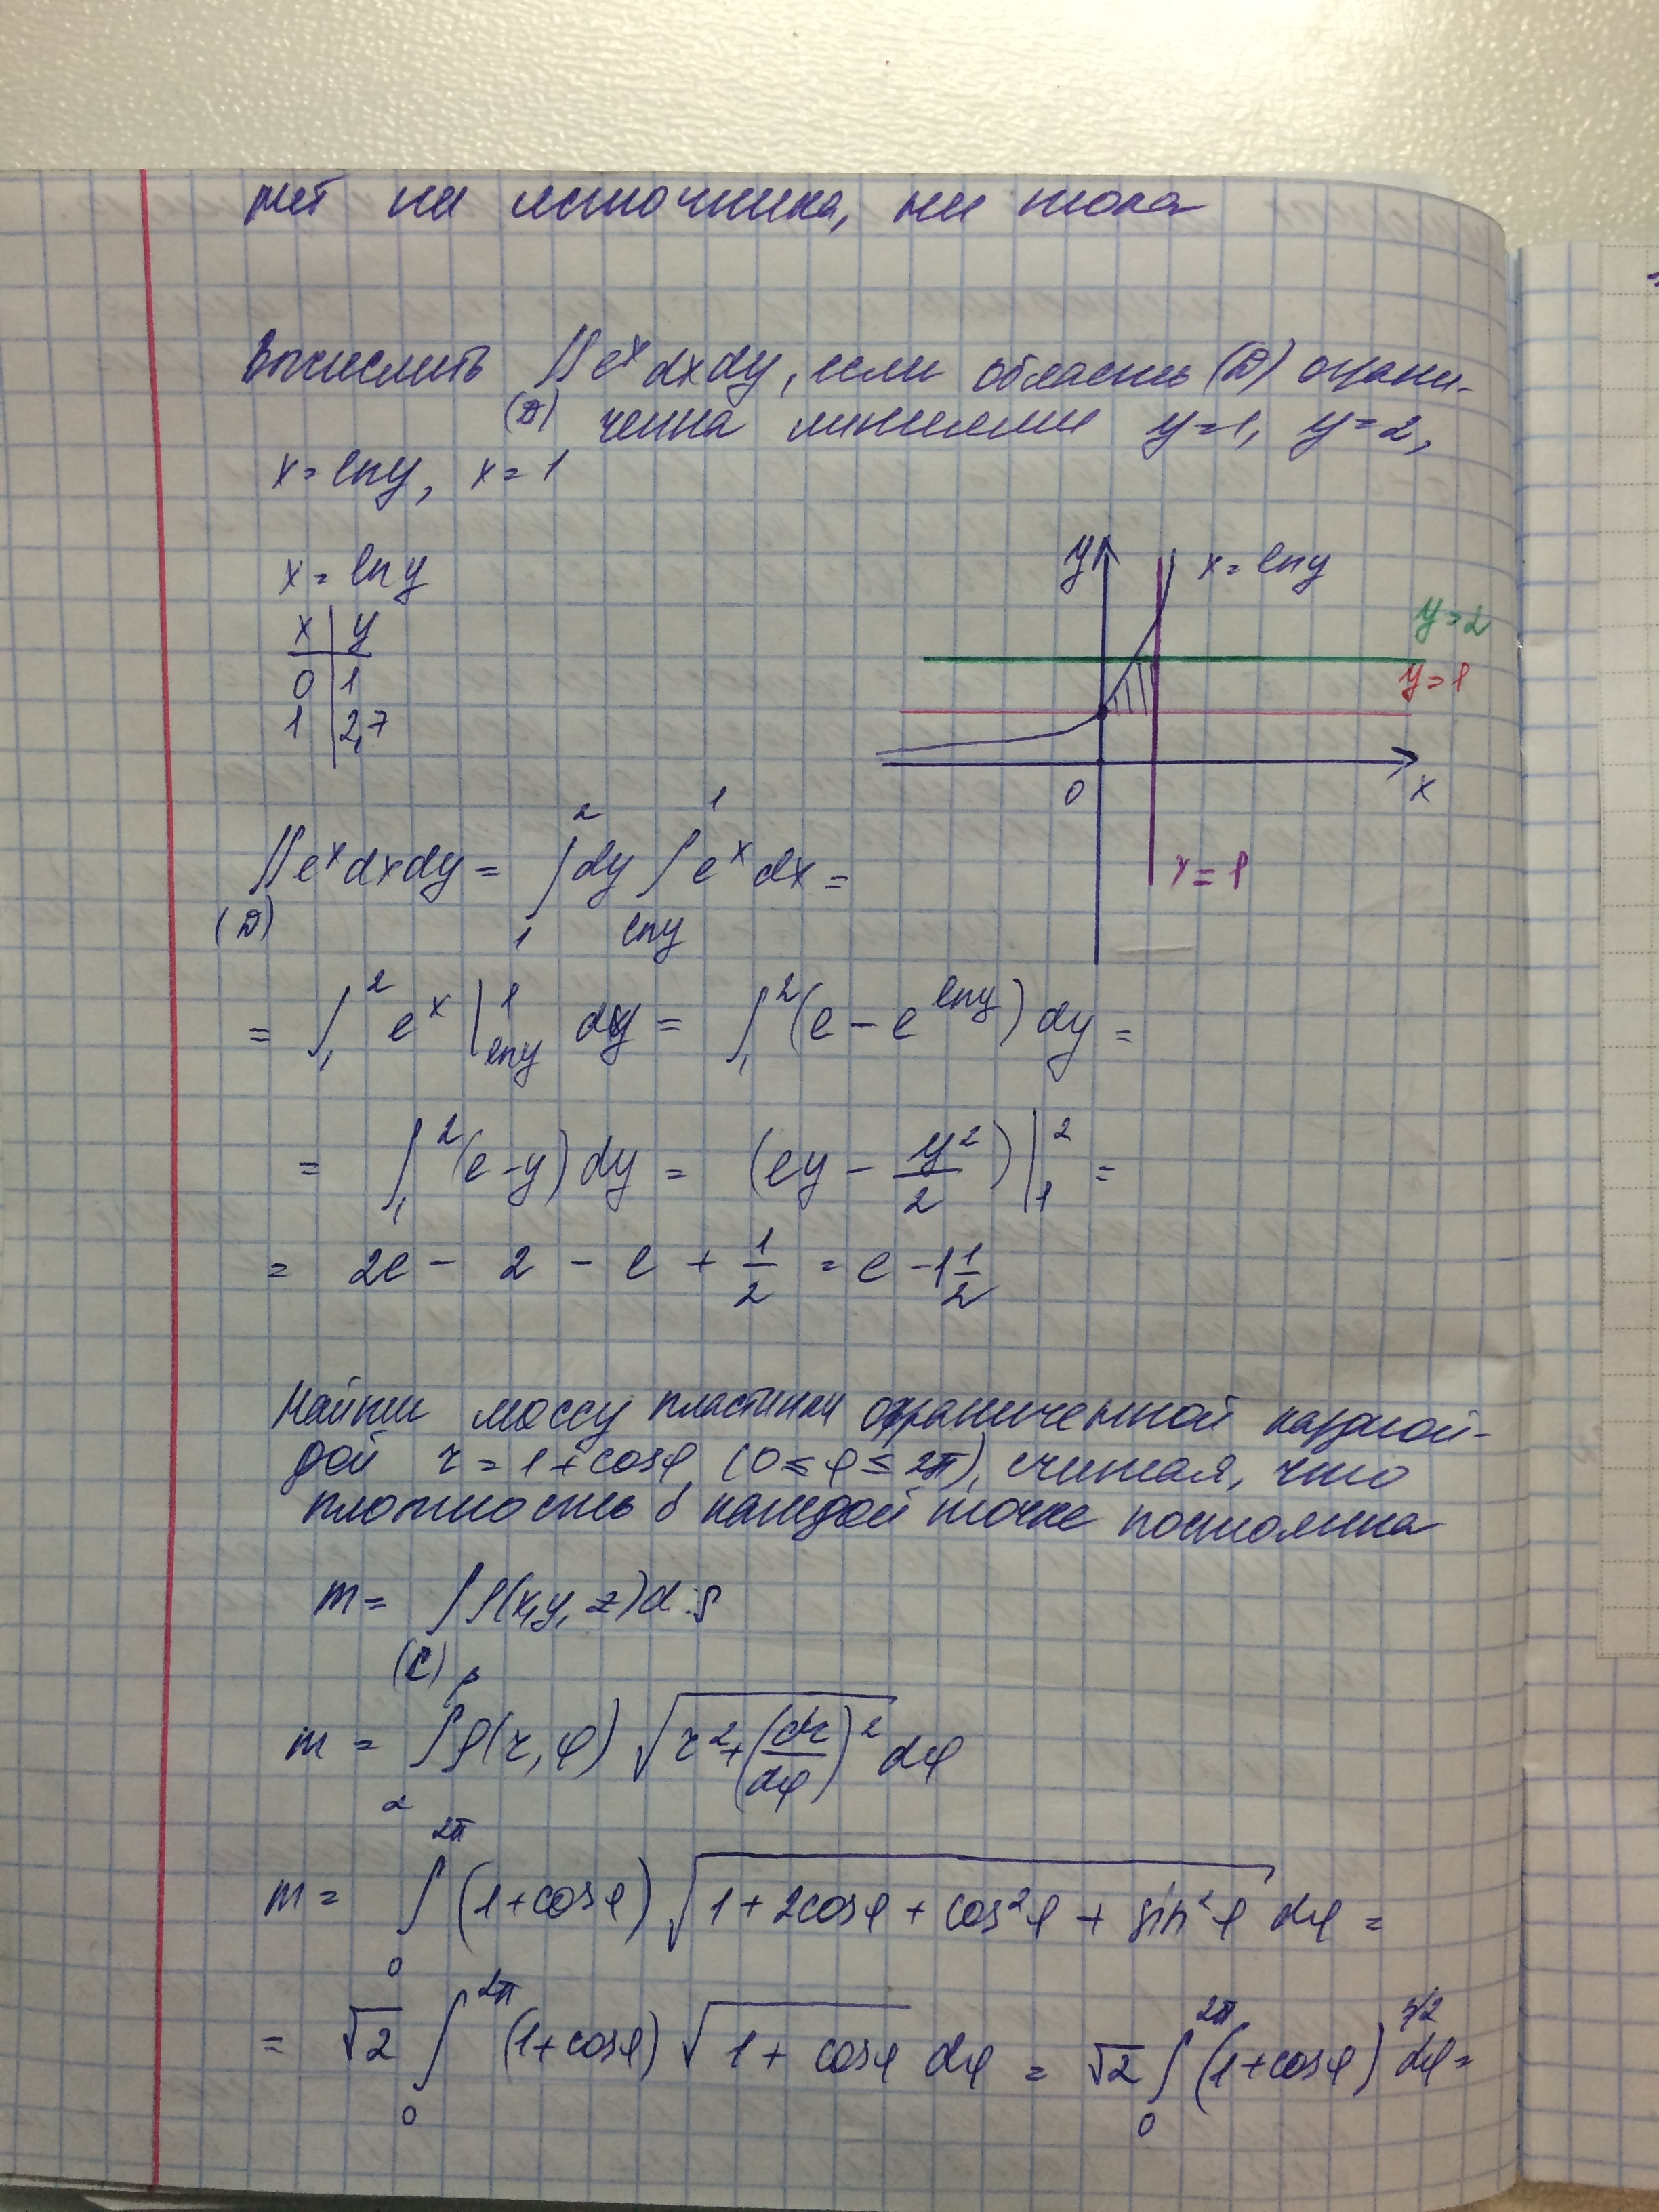 нет ни источника, ни стока
Вычислить ∬eˣ dxdy, если область (D) ограни-
(D) ченна линиями y=1, y=2,
x=lny, x=1
x=lny
x | y
0 | 1
1 | 2,7
y
x=lny
y=2
y=1
0
x
x=1
∬eˣdxdy = ∫₁² dy ∫ₗₙᵧ¹ eˣ dx =
(D)
= ∫₁² eˣ |ₗₙᵧ¹ dy = ∫₁² (e - e^(lny)) dy =
= ∫₁² (e-y) dy = (ey - y²/2) |₁² =
= 2e - 2 - e + 1/2 = e - 1 1/2
Найти массу пластинки ограниченной кардиой-
дой r=1+cosφ (0≤φ≤2π), считая, что
плотность в каждой точке постоянна
m= ∫ ρ(x,y,z)ds
(C)
m = ∫_α^β ρ(r,φ) √(r²+(dr/dφ)²) dφ
m= ∫₀^2π (1+cosφ) √(1+2cosφ+cos²φ+sin²φ) dφ =
= √2 ∫₀^2π (1+cosφ) √(1+cosφ) dφ = √2 ∫₀^2π (1+cosφ)^(3/2) dφ =